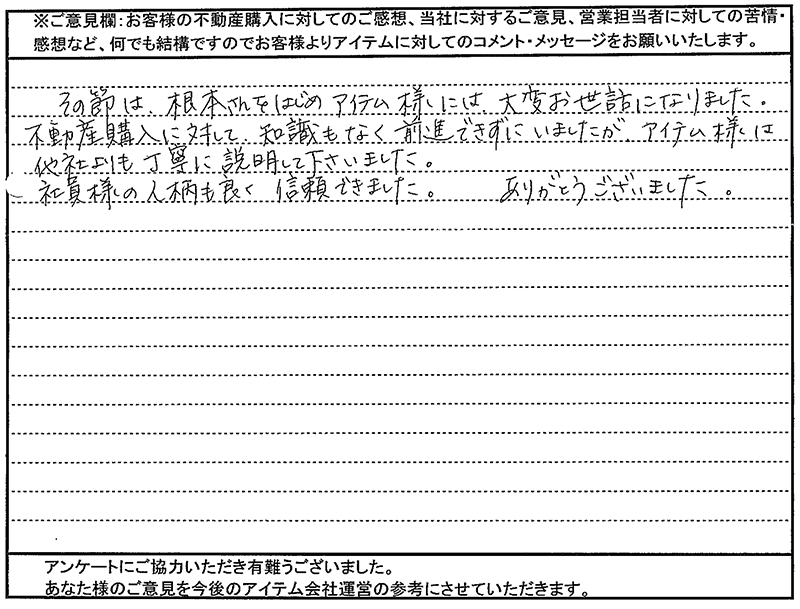 ※ご意見欄：お客様の不動産購入に対してのご感想、当社に対するご意見、営業担当者に対しての苦情・
感想など、何でも結構ですのでお客様よりアイテムに対してのコメント・メッセージをお願いいたします。
その節は、根本さんをはじめアイテム様には、大変お世話になりました。
不動産購入に対して、知識もなく前進できずにいましたが、アイテム様は
他社よりも丁寧に説明して下さいました。
社員様の人柄も良く信頼できました。 ありがとうございました。
アンケートにご協力いただき有難うございました。
あなた様のご意見を今後のアイテム会社運営の参考にさせていただきます。